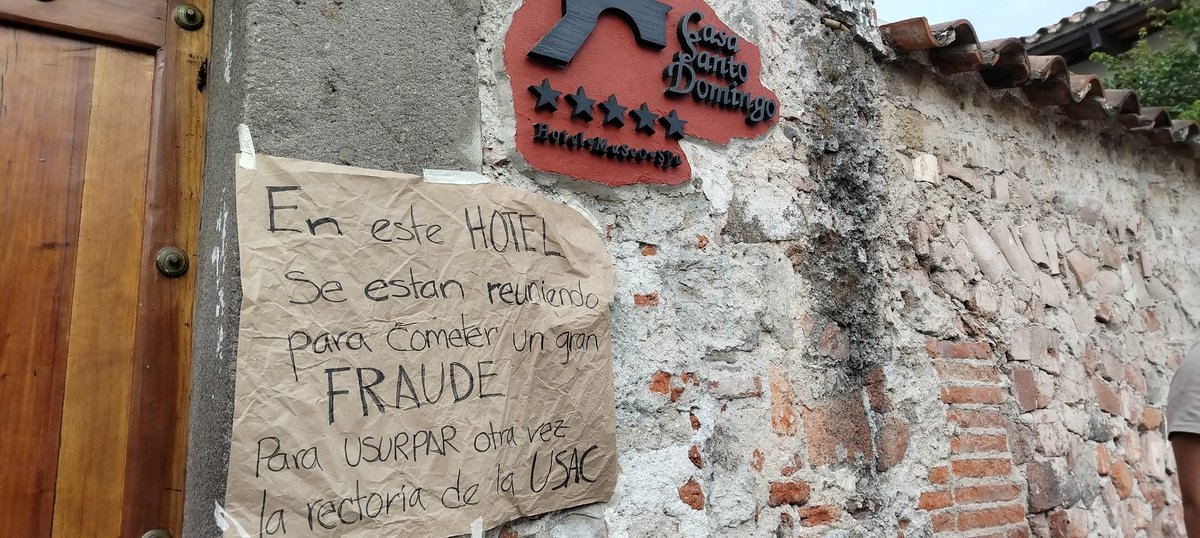 Casa
Santo
Domingo
Hotel•Museo•Spa
En este HOTEL
Se estan reuniendo
para cometer un gran
FRAUDE
Para USURPAR otra vez
la rectoria de la USAC